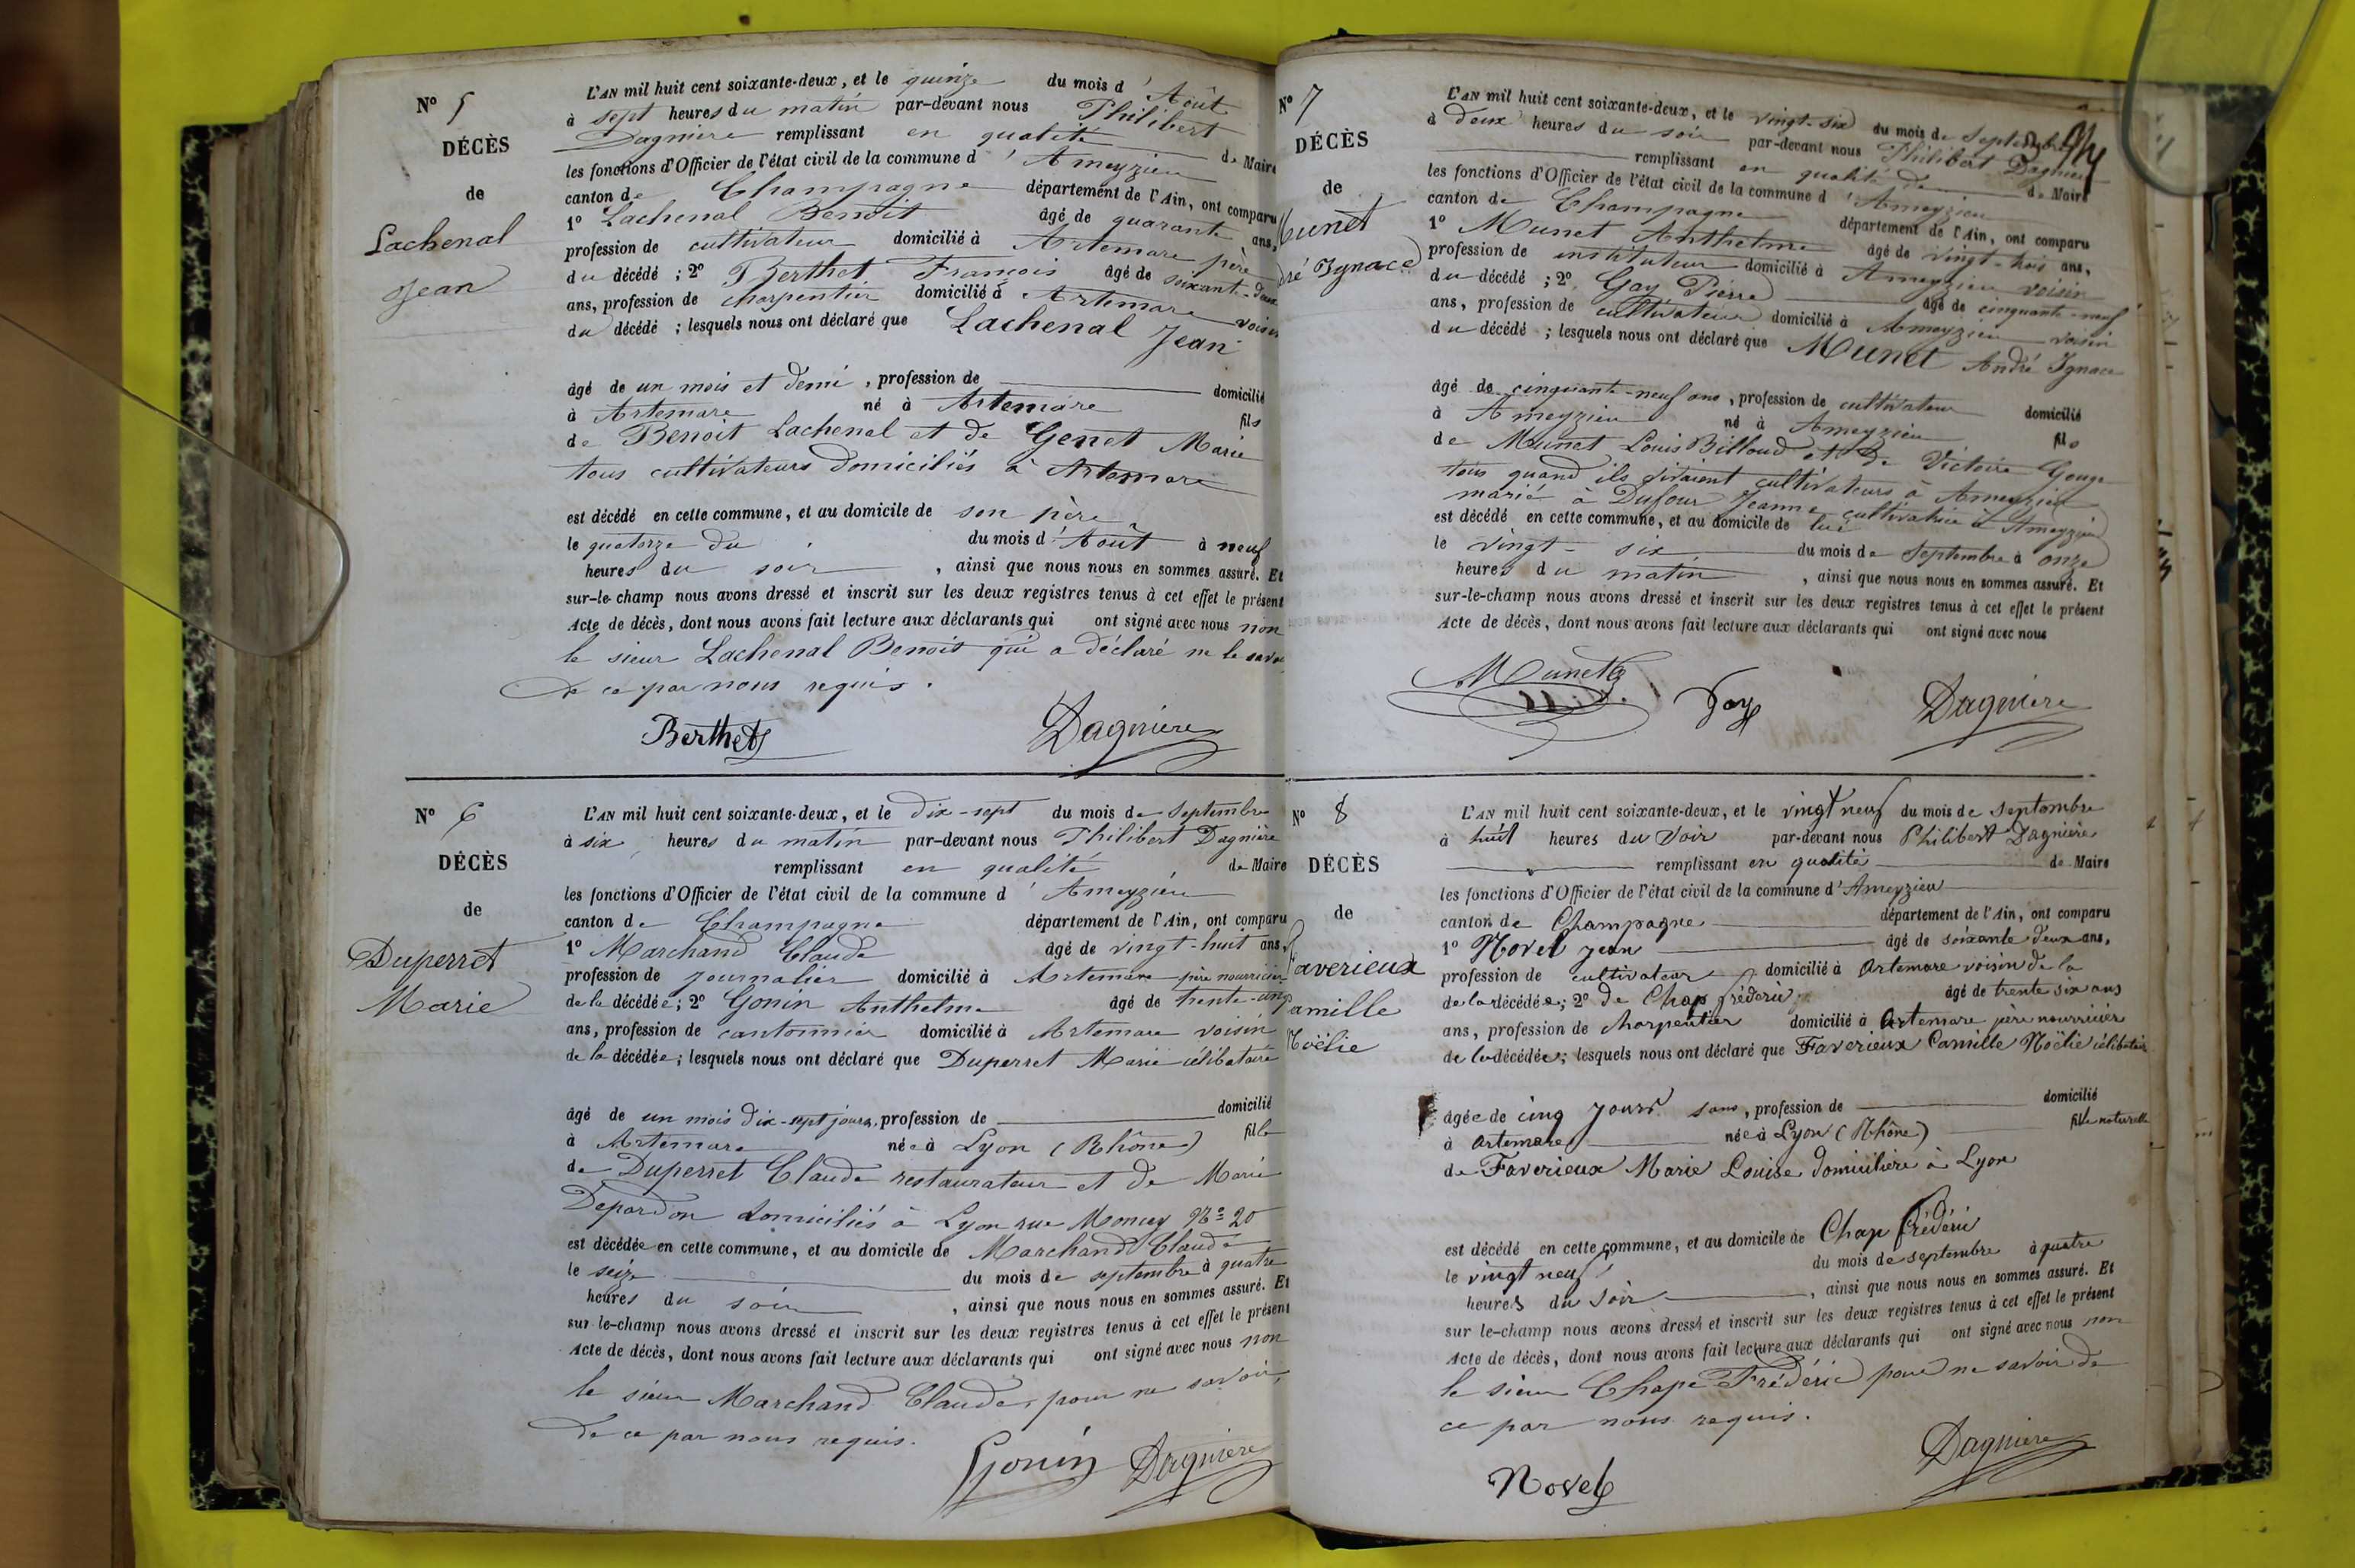 N° 5
DÉCÈS
de
Lachenal
Jean
L'AN mil huit cent soixante-deux, et le quinze du mois d'Août
à sept heures du matin par-devant nous Philibert
Dagnière remplissant en qualité de Maire
les fonctions d'Officier de l'état civil de la commune d'Ameyzieu
canton de Champagne département de l'Ain, ont comparu
1° Lachenal Benoit âgé de quarante ans,
profession de cultivateur domicilié à Artemare père
du décédé ; 2° Berthet François âgé de soixante-deux
ans, profession de charpentier domicilié à Artemare voisin
du décédé ; lesquels nous ont déclaré que Lachenal
Jean
âgé de un mois et demi, profession de domicilié
à Artemare né à Artemare fils
de Benoit Lachenal et de Genet Marie
tous cultivateurs domiciliés à Artemare
est décédé en cette commune, et au domicile de son père
le quatorze du du mois d'Août à neuf
heures du soir, ainsi que nous nous en sommes assuré. Et
sur-le-champ nous avons dressé et inscrit sur les deux registres tenus à cet effet le présent
Acte de décès, dont nous avons fait lecture aux déclarants qui ont signé avec nous non
le sieur Lachenal Benoit qui a déclaré ne le savoir
de ce par nous requis.
Berthet Dagnière
N° 6
DÉCÈS
de
Duperret
Marie
L'AN mil huit cent soixante-deux, et le dix-sept du mois de Septembre
à six heures du matin par-devant nous Philibert Dagnière
remplissant en qualité de Maire
les fonctions d'Officier de l'état civil de la commune d'Ameyzieu
canton de Champagne département de l'Ain, ont comparu
1° Marchand Claude âgé de vingt-huit ans,
profession de journalier domicilié à Artemare père nourricier
de la décédée ; 2° Gonin Anthelme âgé de trente-cinq
ans, profession de cantonnier domicilié à Artemare voisin
de la décédée ; lesquels nous ont déclaré que Duperret Marie célibataire
âgé de un mois dix-sept jours, profession de domicilié
à Artemare née à Lyon (Rhône) fille
de Duperret Claude restaurateur et de Marie
Depardon domiciliés à Lyon rue Moncey N° 20
est décédée en cette commune, et au domicile de Marchand Claude
le seize du mois de septembre à quatre
heures du soir, ainsi que nous nous en sommes assuré. Et
sur-le-champ nous avons dressé et inscrit sur les deux registres tenus à cet effet le présent
Acte de décès, dont nous avons fait lecture aux déclarants qui ont signé avec nous non
le sieur Marchand Claude, pour ne savoir,
de ce par nous requis.
Gonin Dagnière
N° 7
DÉCÈS
de
Munet
dré Ignace
L'AN mil huit cent soixante-deux, et le vingt-six du mois de Septembre
à deux heures du soir par-devant nous Philibert Dagnière
remplissant en qualité de de Maire
les fonctions d'Officier de l'état civil de la commune d'Ameyzieu
canton de Champagne département de l'Ain, ont comparu
1° Munet Anthelme âgé de vingt trois ans,
profession de instituteur domicilié à Ameyzieu voisin
du décédé ; 2° Gay Pierre âgé de cinquante-neuf
ans, profession de cultivateur domicilié à Ameyzieu voisin
du décédé ; lesquels nous ont déclaré que Munet André Ignace
âgé de cinquante-neuf ans, profession de cultivateur domicilié
à Ameyzieu né à Ameyzieu fils
de Munet Louis Billoud et de Victoire Gouge
tous quand ils vivaient cultivateurs à Ameyzieu
marié à Dufour Jeanne cultivatrice à Ameyzieu
est décédé en cette commune, et au domicile de lui
le vingt-six du mois de Septembre à onze
heures du matin, ainsi que nous nous en sommes assuré. Et
sur-le-champ nous avons dressé et inscrit sur les deux registres tenus à cet effet le présent
Acte de décès, dont nous avons fait lecture aux déclarants qui ont signé avec nous
Munet Gay Dagnière
N° 8
DÉCÈS
de
Faverieux
amille
Noëlie
L'AN mil huit cent soixante-deux, et le vingt neuf du mois de Septembre
à huit heures du Soir par-devant nous Philibert Dagnière
remplissant en qualité de Maire
les fonctions d'Officier de l'état civil de la commune d'Ameyzieu
canton de Champagne département de l'Ain, ont comparu
1° Novel Jean âgé de soixante deux ans,
profession de cultivateur domicilié à Artemare voisin de la
de la décédée ; 2° de Chap fréderic âgé de trente six ans
ans, profession de charpentier domicilié à Artemare père nourricier
de la décédée ; lesquels nous ont déclaré que Faverieux Camille Noëlie célibataire
âgée de cinq jours, profession de domicilié
à Artemare née à Lyon (Rhône) fille naturelle
de Faverieux Marie Louise domicilière à Lyon
est décédé en cette commune, et au domicile de Chap frédéric
le vingt neuf du mois de septembre à quatre
heures du Soir, ainsi que nous nous en sommes assuré. Et
sur le-champ nous avons dressé et inscrit sur les deux registres tenus à cet effet le présent
Acte de décès, dont nous avons fait lecture aux déclarants qui ont signé avec nous non
le sieur Chape Frédéric pour ne savoir de
ce par nous requis.
Novel Dagnière